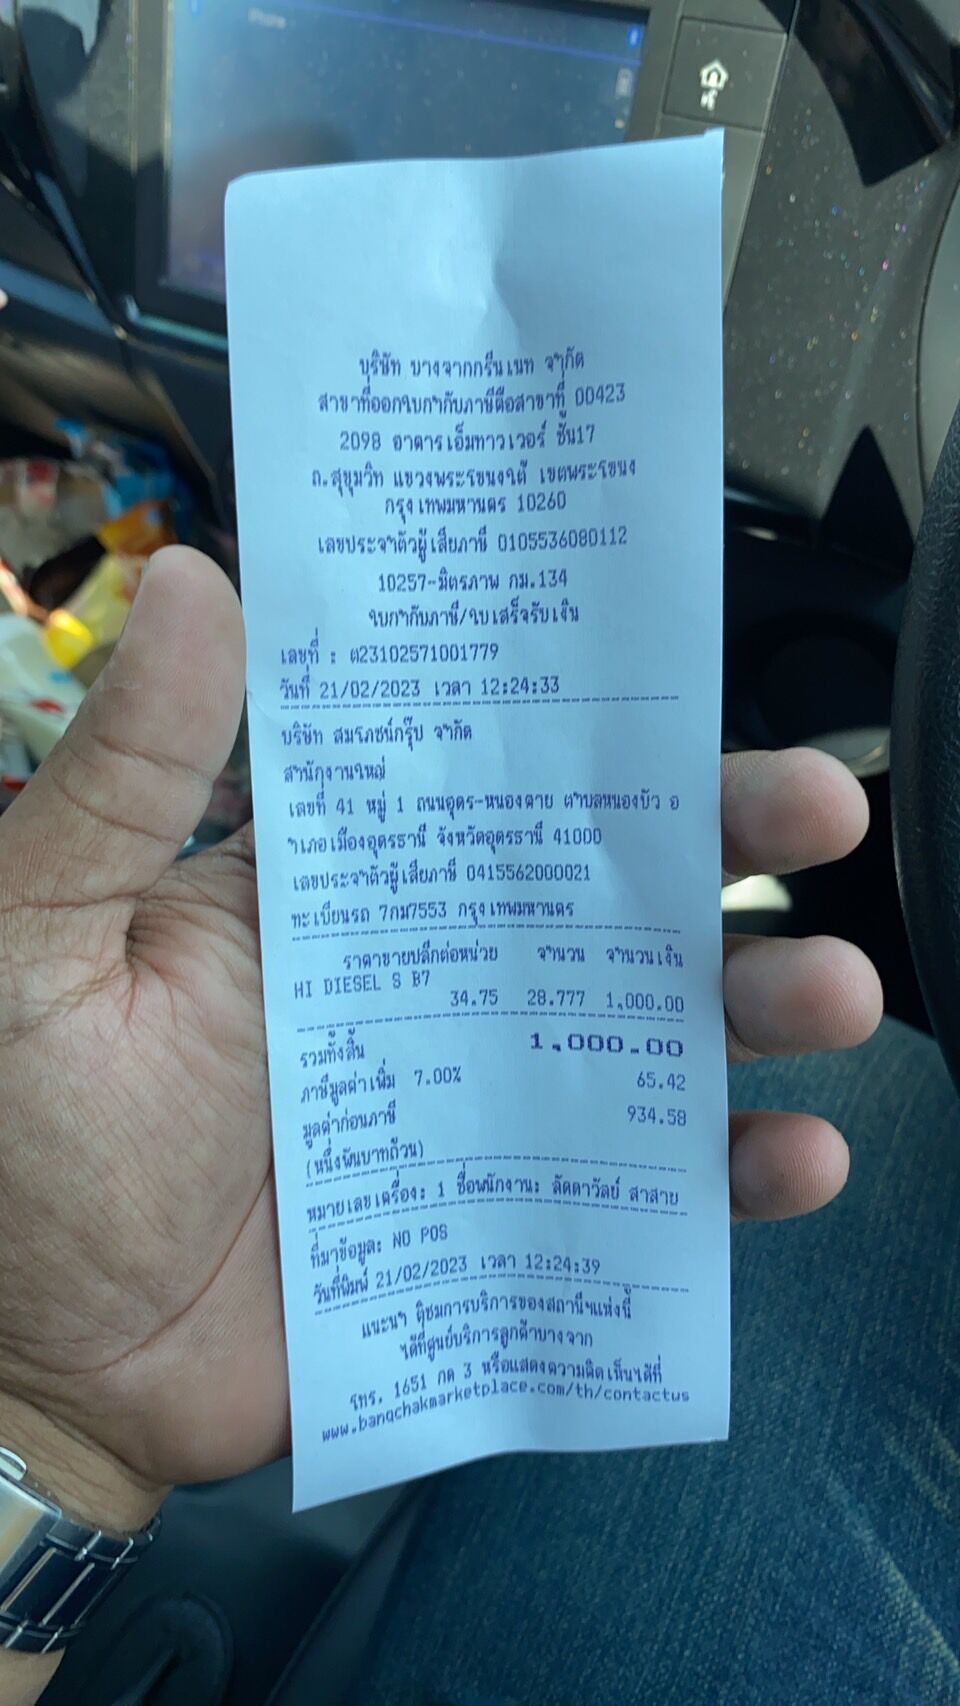 iPhone
บริษัท บางจากกรีนเนท จำกัด
สาขาที่ออกใบกำกับภาษีคือสาขาที่ 00423
2098 อาคารเอ็มทาวเวอร์ ชั้น17
ถ.สุขุมวิท แขวงพระโขนงใต้ เขตพระโขนง
กรุงเทพมหานคร 10260
เลขประจำตัวผู้เสียภาษี 0105536080112
10257-มิตรภาพ กม.134
ใบกำกับภาษี/ใบเสร็จรับเงิน
เลขที่ : ต23102571001779
วันที่ 21/02/2023 เวลา 12:24:33
บริษัท สมโภชน์กรุ๊ป จำกัด
สำนักงานใหญ่
เลขที่ 41 หมู่ 1 ถนนอุดร-หนองคาย ตำบลหนองบัว อ
ำเภอเมืองอุดรธานี จังหวัดอุดรธานี 41000
เลขประจำตัวผู้เสียภาษี 0415562000021
ทะเบียนรถ 7กม7553 กรุงเทพมหานคร
ราคาขายปลีกต่อหน่วย จำนวน จำนวนเงิน
HI DIESEL S B7
34.75 28.777 1,000.00
รวมทั้งสิ้น 1,000.00
ภาษีมูลค่าเพิ่ม 7.00% 65.42
มูลค่าก่อนภาษี 934.58
(หนึ่งพันบาทถ้วน)
หมายเลขเครื่อง: 1 ชื่อพนักงาน: ลัดดาวัลย์ สาสาย
ที่มาข้อมูล: NO POS
วันที่พิมพ์ 21/02/2023 เวลา 12:24:39
แนะนำ ติชมการบริการของสถานีฯแห่งนี้
ได้ที่ศูนย์บริการลูกค้าบางจาก
โทร. 1651 กด 3 หรือแสดงความคิดเห็นได้ที่
www.bangchakmarketplace.com/th/contactus